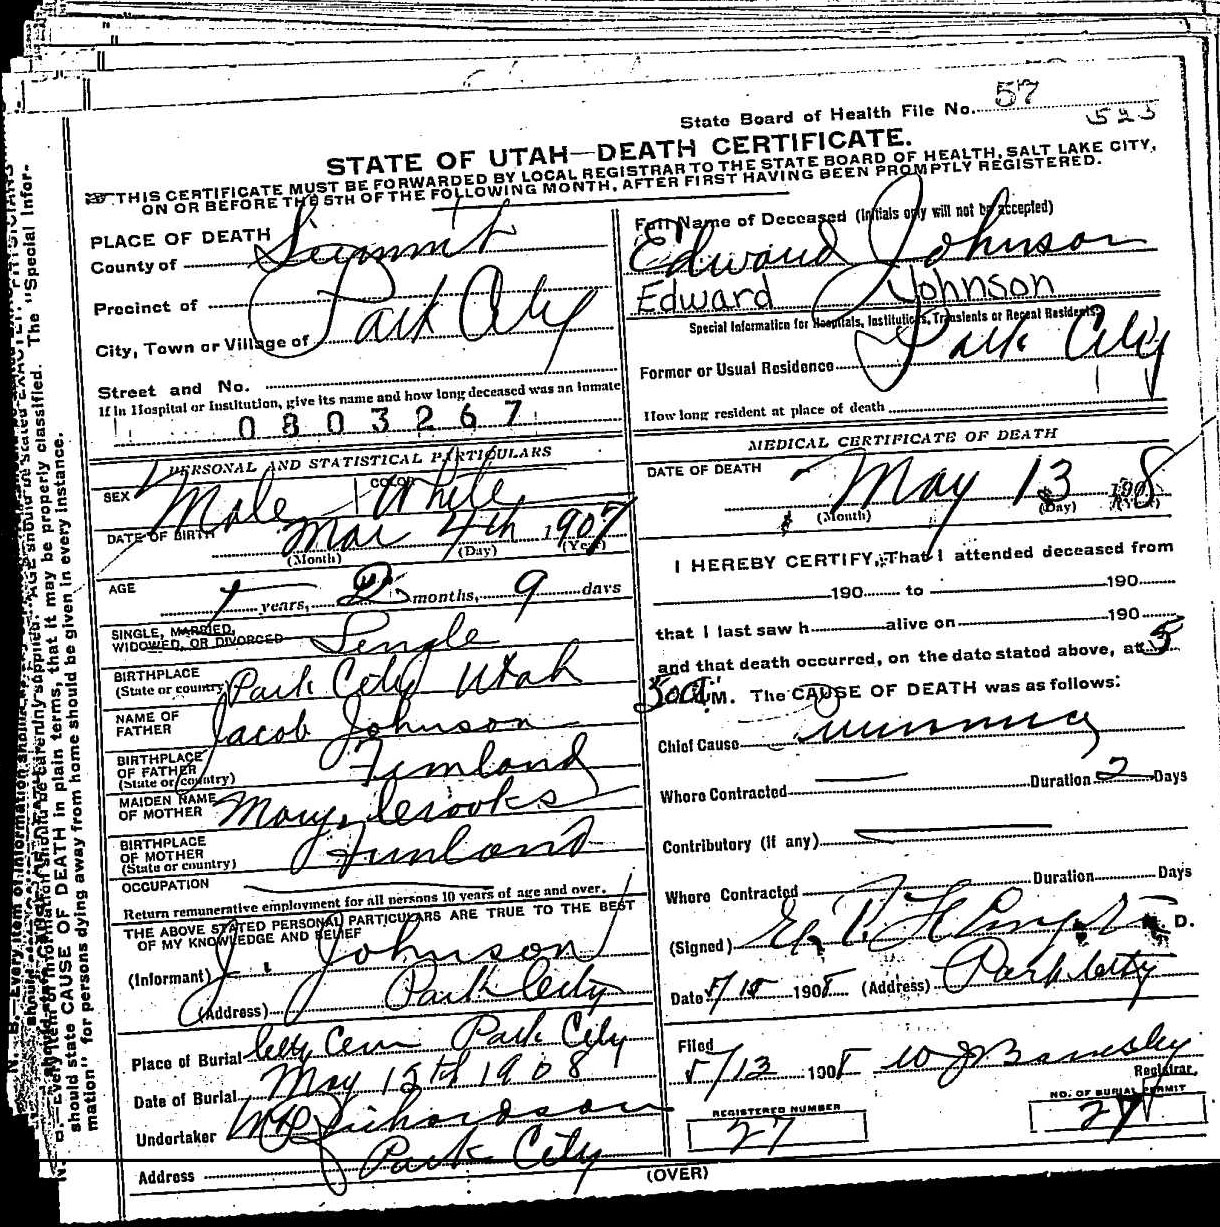 State Board of Health File No. 57
525
STATE OF UTAH—DEATH CERTIFICATE.
THIS CERTIFICATE MUST BE FORWARDED BY LOCAL REGISTRAR TO THE STATE BOARD OF HEALTH, SALT LAKE CITY,
ON OR BEFORE THE 5TH OF THE FOLLOWING MONTH, AFTER FIRST HAVING BEEN PROMPTLY REGISTERED.
PLACE OF DEATH
County of Summit
Precinct of
City, Town or Village of Park City
Street and No.
If in Hospital or Institution, give its name and how long deceased was an inmate
0803267
PERSONAL AND STATISTICAL PARTICULARS
SEX Male COLOR White
DATE OF BIRTH Mar 4th 1907
(Month) (Day) (Year)
AGE 1 years, 2 months, 9 days
SINGLE, MARRIED,
WIDOWED, OR DIVORCED Single
BIRTHPLACE
(State or country) Park City Utah
NAME OF
FATHER Jacob Johnson
BIRTHPLACE
OF FATHER
(State or country) Finland
MAIDEN NAME
OF MOTHER Mary
BIRTHPLACE
OF MOTHER
(State or country) Finland
OCCUPATION
Return remunerative employment for all persons 10 years of age and over.
THE ABOVE STATED PERSONAL PARTICULARS ARE TRUE TO THE BEST
OF MY KNOWLEDGE AND BELIEF
(Informant) J. Johnson
(Address) Park City
Place of Burial City Cem Park City
Date of Burial May 15th 1908
Undertaker Richardson
Address Park City
Full Name of Deceased (Initials only will not be accepted)
Edward Johnson
Edward Johnson
Special Information for Hospitals, Institutions, Transients or Recent Residents.
Former or Usual Residence Park City
How long resident at place of death
MEDICAL CERTIFICATE OF DEATH
DATE OF DEATH May 13 1908
(Month) (Day) (Year)
I HEREBY CERTIFY, That I attended deceased from
190 to 190
that I last saw h alive on 190
and that death occurred, on the date stated above, at 5
30 a M. The CAUSE OF DEATH was as follows:
Chief Cause
Where Contracted Duration 2 Days
Contributory (if any)
Where Contracted Duration Days
(Signed) M. D.
Date 5/15 1908 (Address) Park City
Filed
5/13 1908 W J Barnsley
Registrar.
REGISTERED NUMBER
27
NO. OF BURIAL PERMIT
27
(OVER)
should state CAUSE OF DEATH in plain terms, that it may be properly classified. The "Special Infor-
mation" for persons dying away from home should be given in every instance.